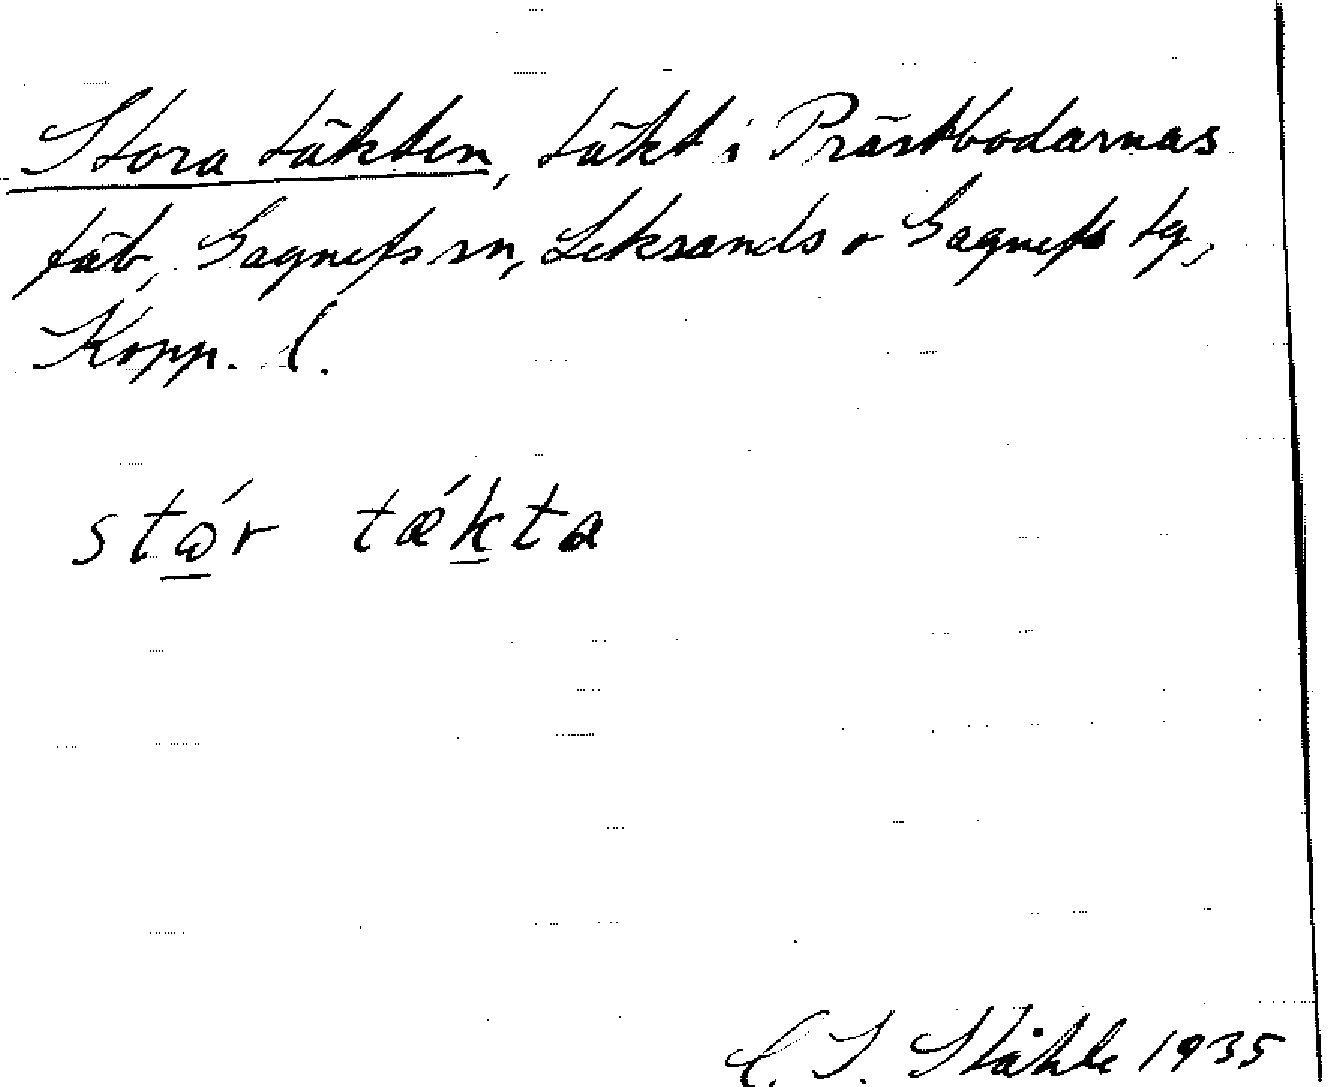 Stora täkten, täkt i Prästbodarnas
fäb, Gagnefs sn, Leksands o Gagnefs tg,
Kopp. l.
stǫ́r tǽkta
C. I. Ståhle 1935